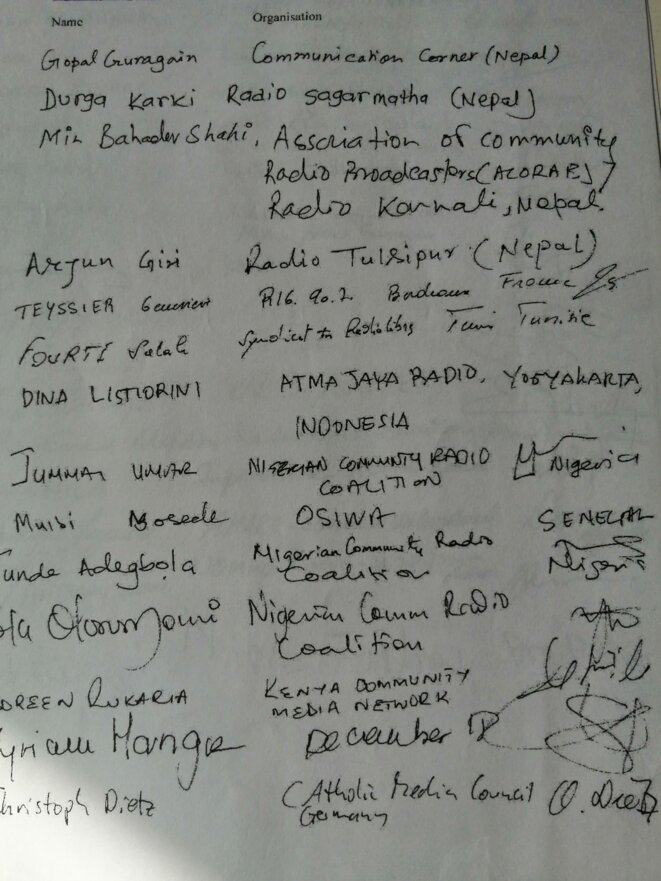 Name Organisation
Gopal Guragain Communication Corner (Nepal)
Durga Karki Radio Sagarmatha (Nepal)
Min Bahadur Shahi, Association of community
Radio Broadcasters (ACORAB) /
Radio Karnali, Nepal.
Arjun Giri Radio Tulsipur (Nepal)
TEYSSIER R16. 90.2 Bordeaux France
FOURTI Salah Syndicat Radio libres Tunis Tunisie
DINA LISTIORINI ATMA JAYA RADIO, YOGYAKARTA,
INDONESIA
JUMMAI UMAR NIGERIAN COMMUNITY RADIO Nigeria
COALITION
Muibi OSIWA SENEGAL
unde Adegbola Nigerian Community Radio Nigeria
Coalition
Nigerian Comm Radio
Coalition
OREEN RUKARIA KENYA COMMUNITY
MEDIA NETWORK
December 12
hristoph Dietz Catholic Media Council O. Dietz
Germany